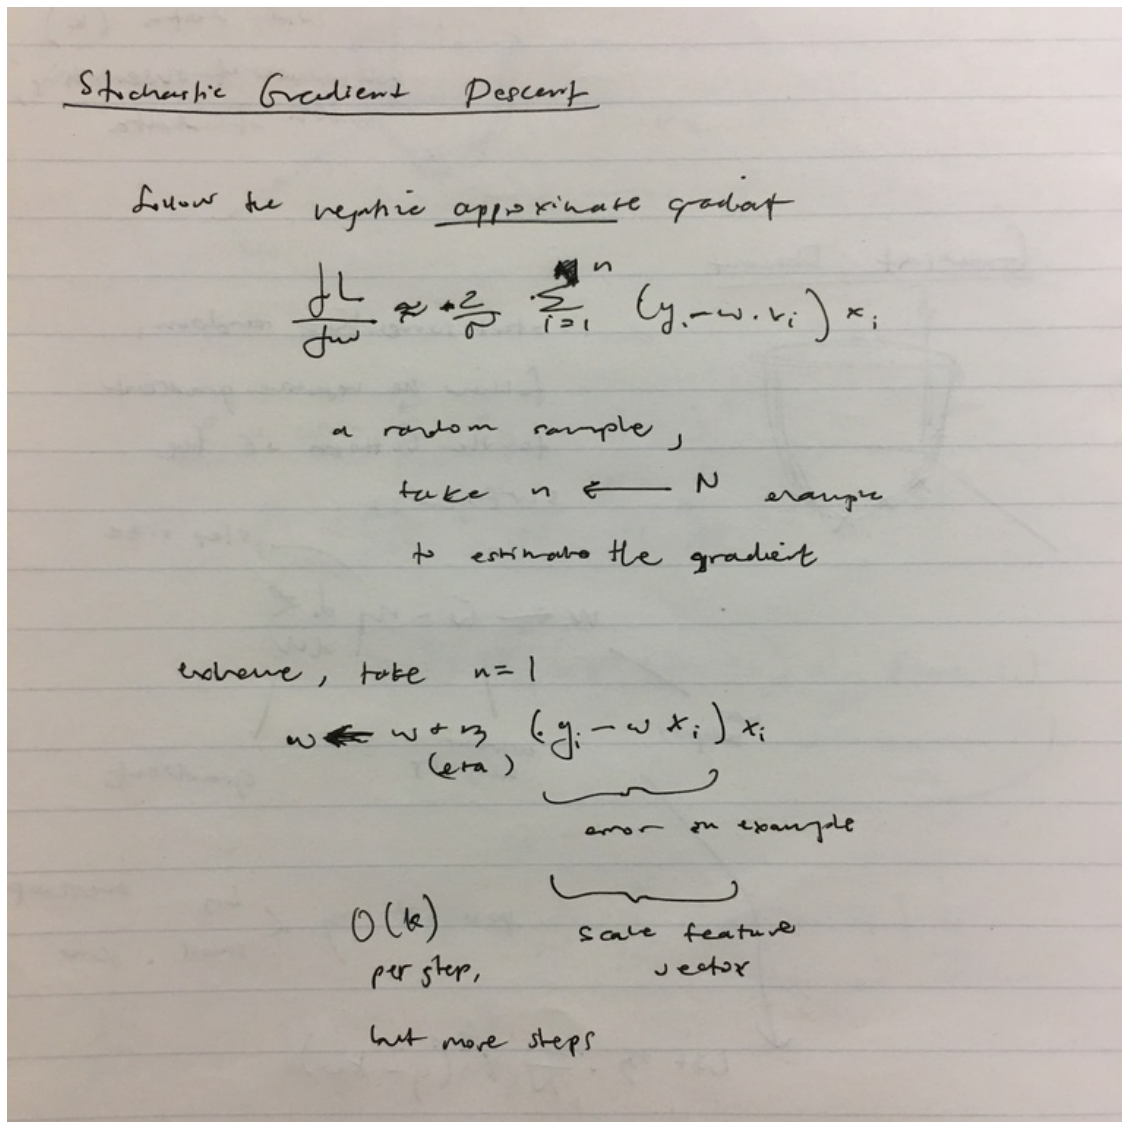 Stochastic Gradient Descent
follow the negative approximate gradient
dL/dw ≈ -2/n Σ_{i=1}^{n} (y_i - w . x_i) x_i
a random sample,
take n ← N example
to estimate the gradient
extreme, take n = 1
w ← w + η (y_i - w x_i) x_i
(eta)
error on example
O(k)
scale feature
per step,
vector
but more steps